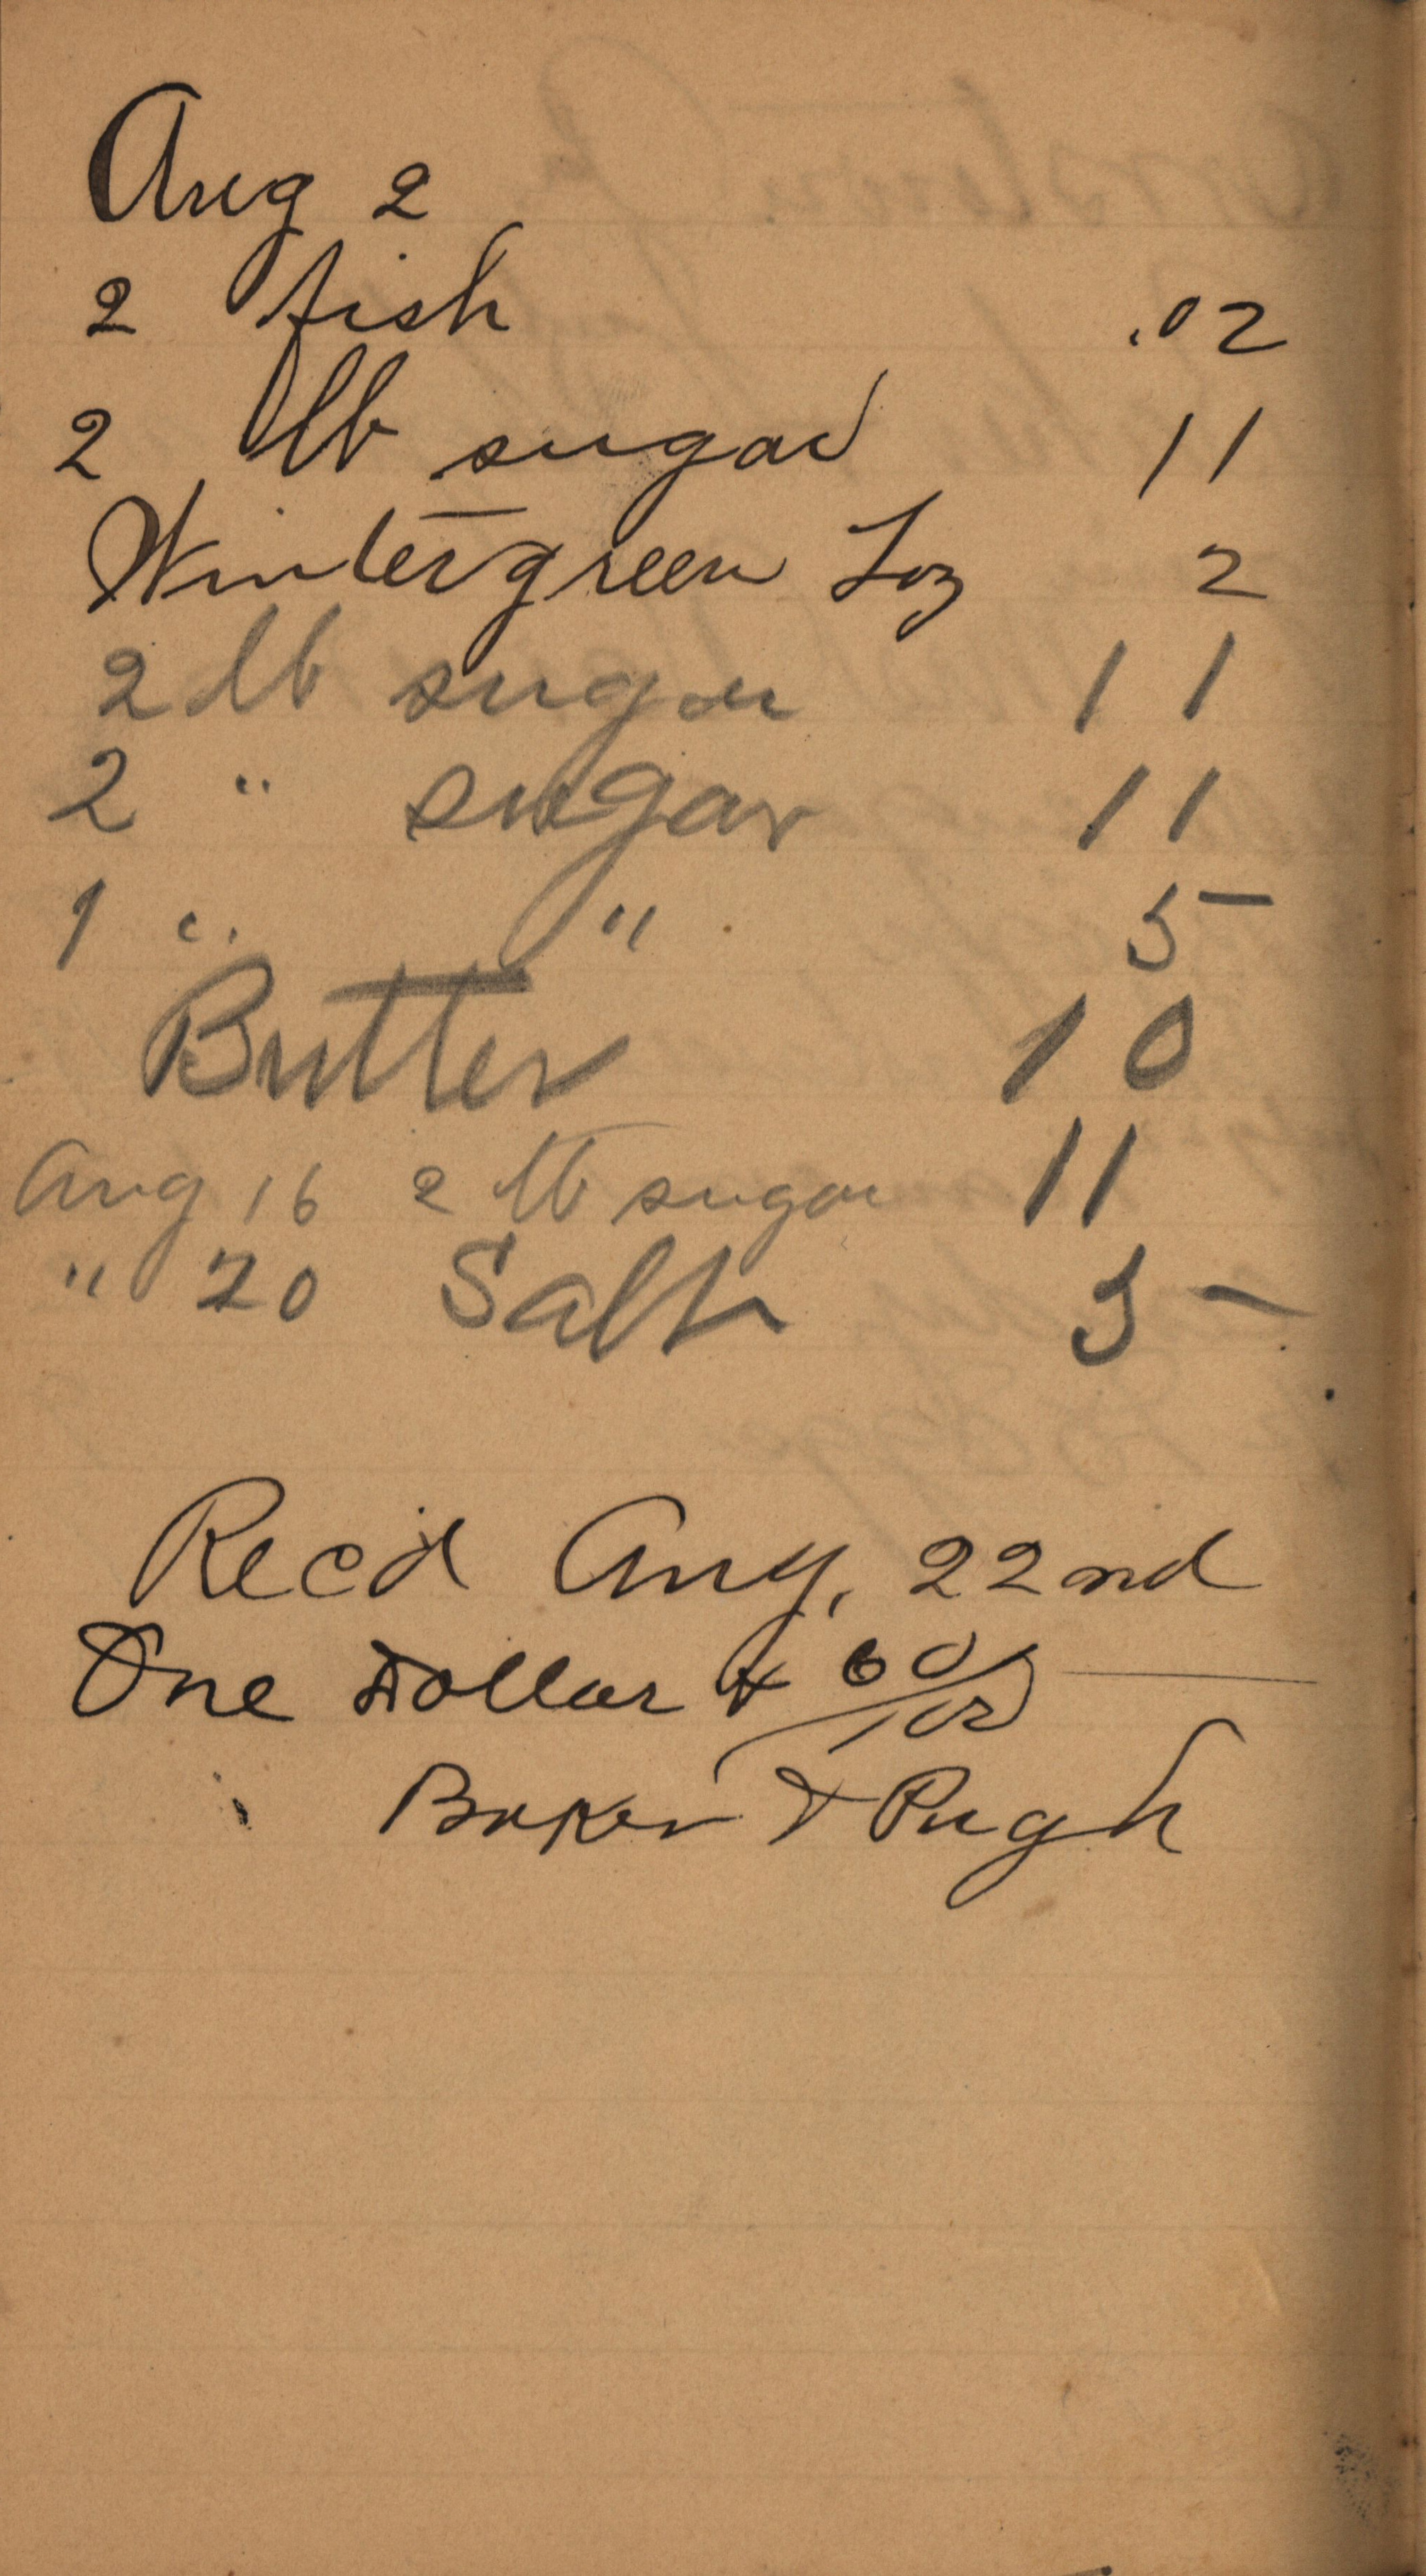 Aug 2
2 fish .02
2 lb sugar 11
Wintergreen Loz 2
2 lb sugar 11
2 " sugar 11
1 " " 5
Butter 10
Aug 16 2 lb sugar 11
" 20 Salt 5
Rec'd Aug. 22nd
One Dollar & 60/100
Baker & Pugh